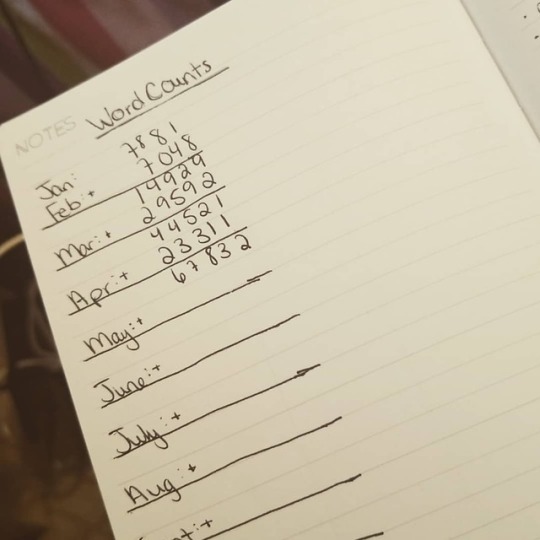 NOTES Word Counts
Jan: 7881
Feb: + 7048
14929
Mar: + 29592
44521
Apr: + 23311
67832
May: +
June: +
July: +
Aug: +